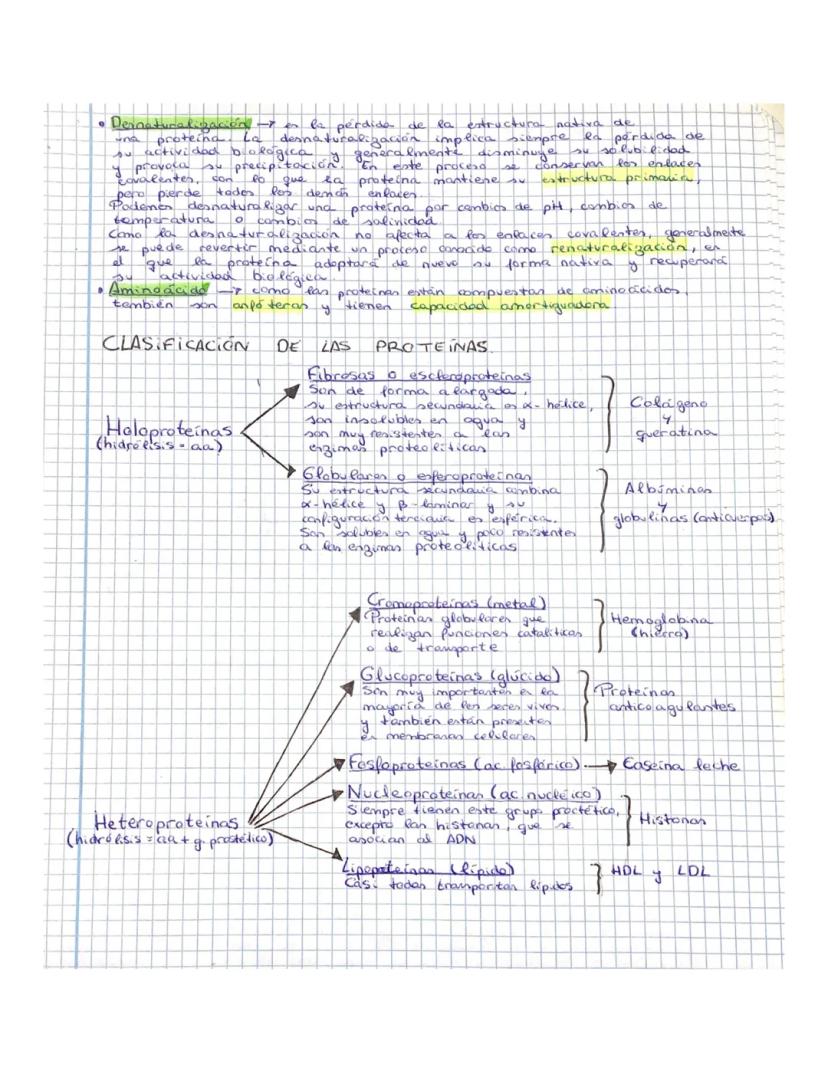 • Desnaturalización → es la pérdida de la estructura nativa de
una proteína. La desnaturalización implica siempre la pérdida de
su actividad biológica y generalmente disminuye su solubilidad
y provoca su precipitación. En este proceso se conservan los enlaces
covalentes, con lo que la proteína mantiene su estructura primaria,
pero pierde todos los demás enlaces.
Podemos desnaturalizar una proteína por cambios de pH, cambios de
temperatura o cambios de salinidad.
Como la desnaturalización no afecta a los enlaces covalentes, generalmente
se puede revertir mediante un proceso conocido como renaturalización, en
el que la proteína adoptará de nuevo su forma nativa y recuperará
su actividad biológica.
• Aminoácido → como las proteínas están compuestas de aminoácidos,
también son anfóteras y tienen capacidad amortiguadora
CLASIFICACIÓN DE LAS PROTEÍNAS.
Holoproteínas
(hidrólisis = aa)
Fibrosas o escleroproteínas
Son de forma alargada,
su estructura secundaria es α-hélice,
son insolubles en agua y
son muy resistentes a las
enzimas proteolíticas
Colágeno
y
queratina
Globulares o esferoproteínas
Su estructura secundaria combina
α-hélice y β-láminas y su
configuración terciaria es esférica.
Son solubles en agua y poco resistentes
a las enzimas proteolíticas
Albúminas
y
globulinas (anticuerpos)
Heteroproteínas
(hidrólisis = aa + g. prostético)
Cromoproteínas (metal)
Proteínas globulares que
realizan funciones catalíticas
o de transporte
Hemoglobina
(hierro)
Glucoproteínas (glúcido)
Son muy importantes en la
mayoría de los seres vivos
y también están presentes
en membranas celulares
Proteínas
anticoagulantes
Fosfoproteínas (ac. fosfórico) → Caseína leche
Nucleoproteínas (ac. nucléico)
Siempre tienen este grupo proctético,
excepto las histonas, que se
asocian al ADN
Histonas
Lipoproteínas (lípido)
Casi todas transportan lípidos
HDL y LDL